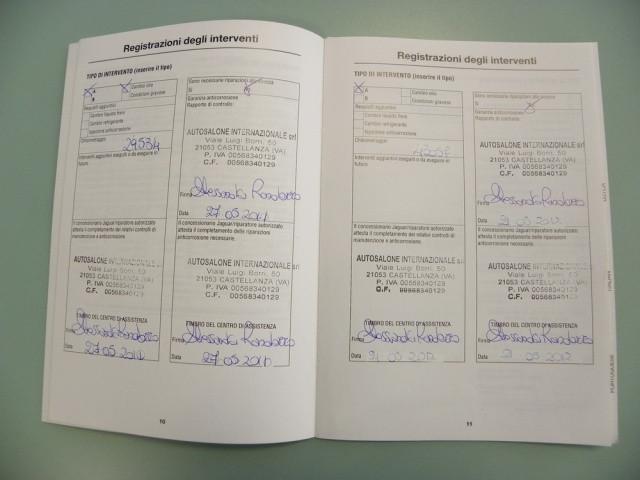 Registrazioni degli interventi
TIPO DI INTERVENTO (inserire il tipo)
X A
X Cambio olio
B
Condizioni gravose
Requisiti aggiuntivi
Cambio liquido freni
Cambio refrigerante
Ispezione anticorrosione
Chilometraggio
29534
Interventi aggiuntivi eseguiti o da eseguire in
futuro.
Il concessionario Jaguar/riparatore autorizzato
attesta il completamento dei relativi controlli di
manutenzione e anticorrosione.
AUTOSALONE INTERNAZIONALE
Viale Luigi Borri, 50
21053 CASTELLANZA (VA)
P. IVA 00568340129
C.F. 00568340129
TIMBRO DEL CENTRO DI ASSISTENZA
Data
27 05 2011
Sono necessarie riparazioni alla
Sì
Garanzia anticorrosione
Rapporto di controllo:
AUTOSALONE INTERNAZIONALE srl
Viale Luigi Borri, 50
21053 CASTELLANZA (VA)
P. IVA 00568340129
C.F. 00568340129
Firma
Data
27 05 2011
Il concessionario Jaguar/riparatore autorizzato
attesta il completamento delle riparazioni
anticorrosione necessarie.
AUTOSALONE INTERNAZIONALE srl
Viale Luigi Borri, 50
21053 CASTELLANZA (VA)
P. IVA 00568340129
C.F. 00568340129
TIMBRO DEL CENTRO DI ASSISTENZA
Data
27 05 2011
10
Registrazioni degli interventi
TIPO DI INTERVENTO (inserire il tipo)
X A
Cambio olio
B
Condizioni gravose
Requisiti aggiuntivi
Cambio liquido freni
Cambio refrigerante
Ispezione anticorrosione
Chilometraggio
Interventi aggiuntivi eseguiti o da eseguire in
futuro.
Il concessionario Jaguar/riparatore autorizzato
attesta il completamento dei relativi controlli di
manutenzione e anticorrosione.
AUTOSALONE INTERNAZIONALE
Viale Luigi Borri, 50
21053 CASTELLANZA (VA)
P. IVA 00568340129
C.F. 00568340129
TIMBRO DEL CENTRO DI ASSISTENZA
Data
05 2012
Sono necessarie riparazioni alla
Sì
Garanzia anticorrosione
Rapporto di controllo:
AUTOSALONE INTERNAZIONALE
Viale Luigi Borri, 50
21053 CASTELLANZA (VA)
P. IVA 00568340129
C.F. 00568340129
Firma
Data
05 2012
Il concessionario Jaguar/riparatore autorizzato
attesta il completamento delle riparazioni
anticorrosione necessarie.
AUTOSALONE INTERNAZIONALE
Viale Luigi Borri, 50
21053 CASTELLANZA (VA)
P. IVA 00568340129
C.F. 00568340129
TIMBRO DEL CENTRO DI ASSISTENZA
Data
05 2012
11